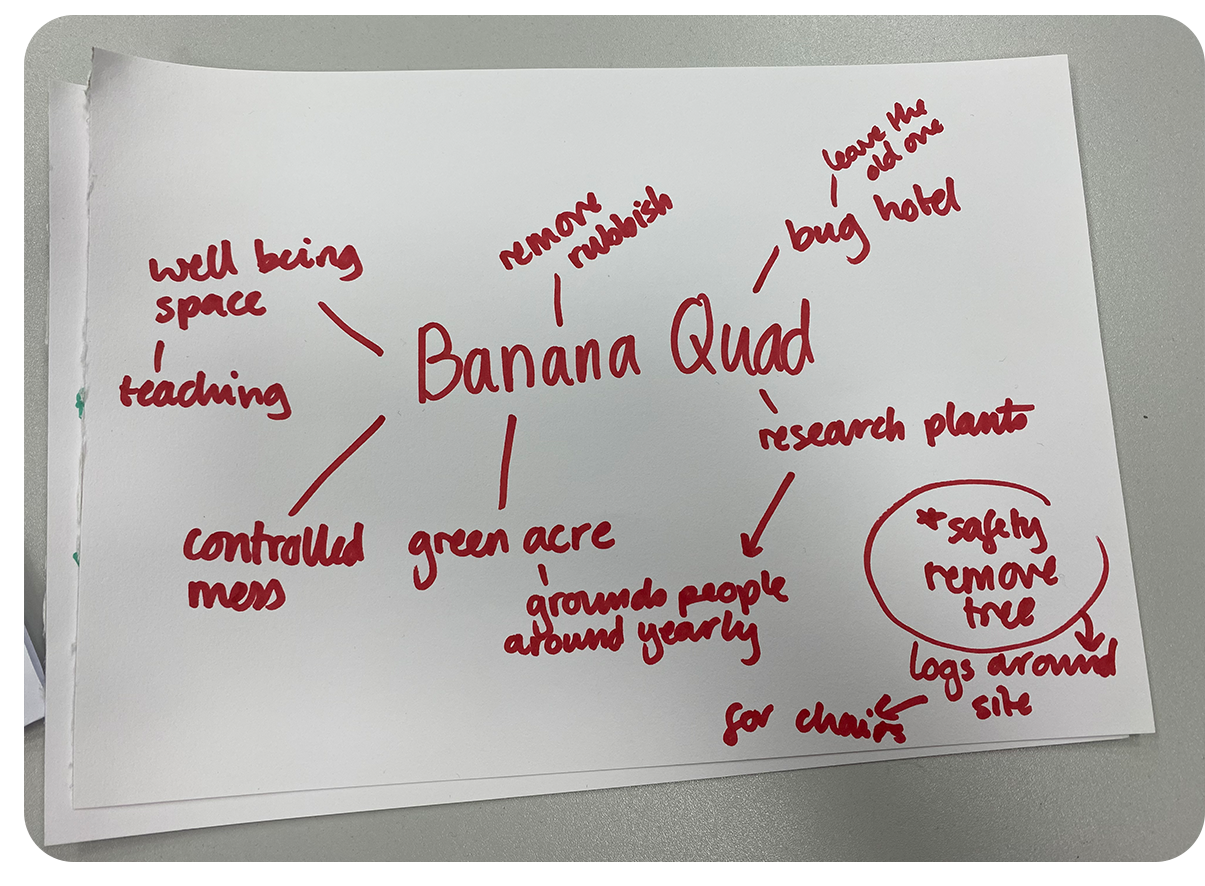 leave the
old one
bug hotel
remove
rubbish
well being
space
teaching
Banana Quad
research plants
controlled
mess
green acre
grounds people
around yearly
*safety
remove
tree
logs around
site
for chairs